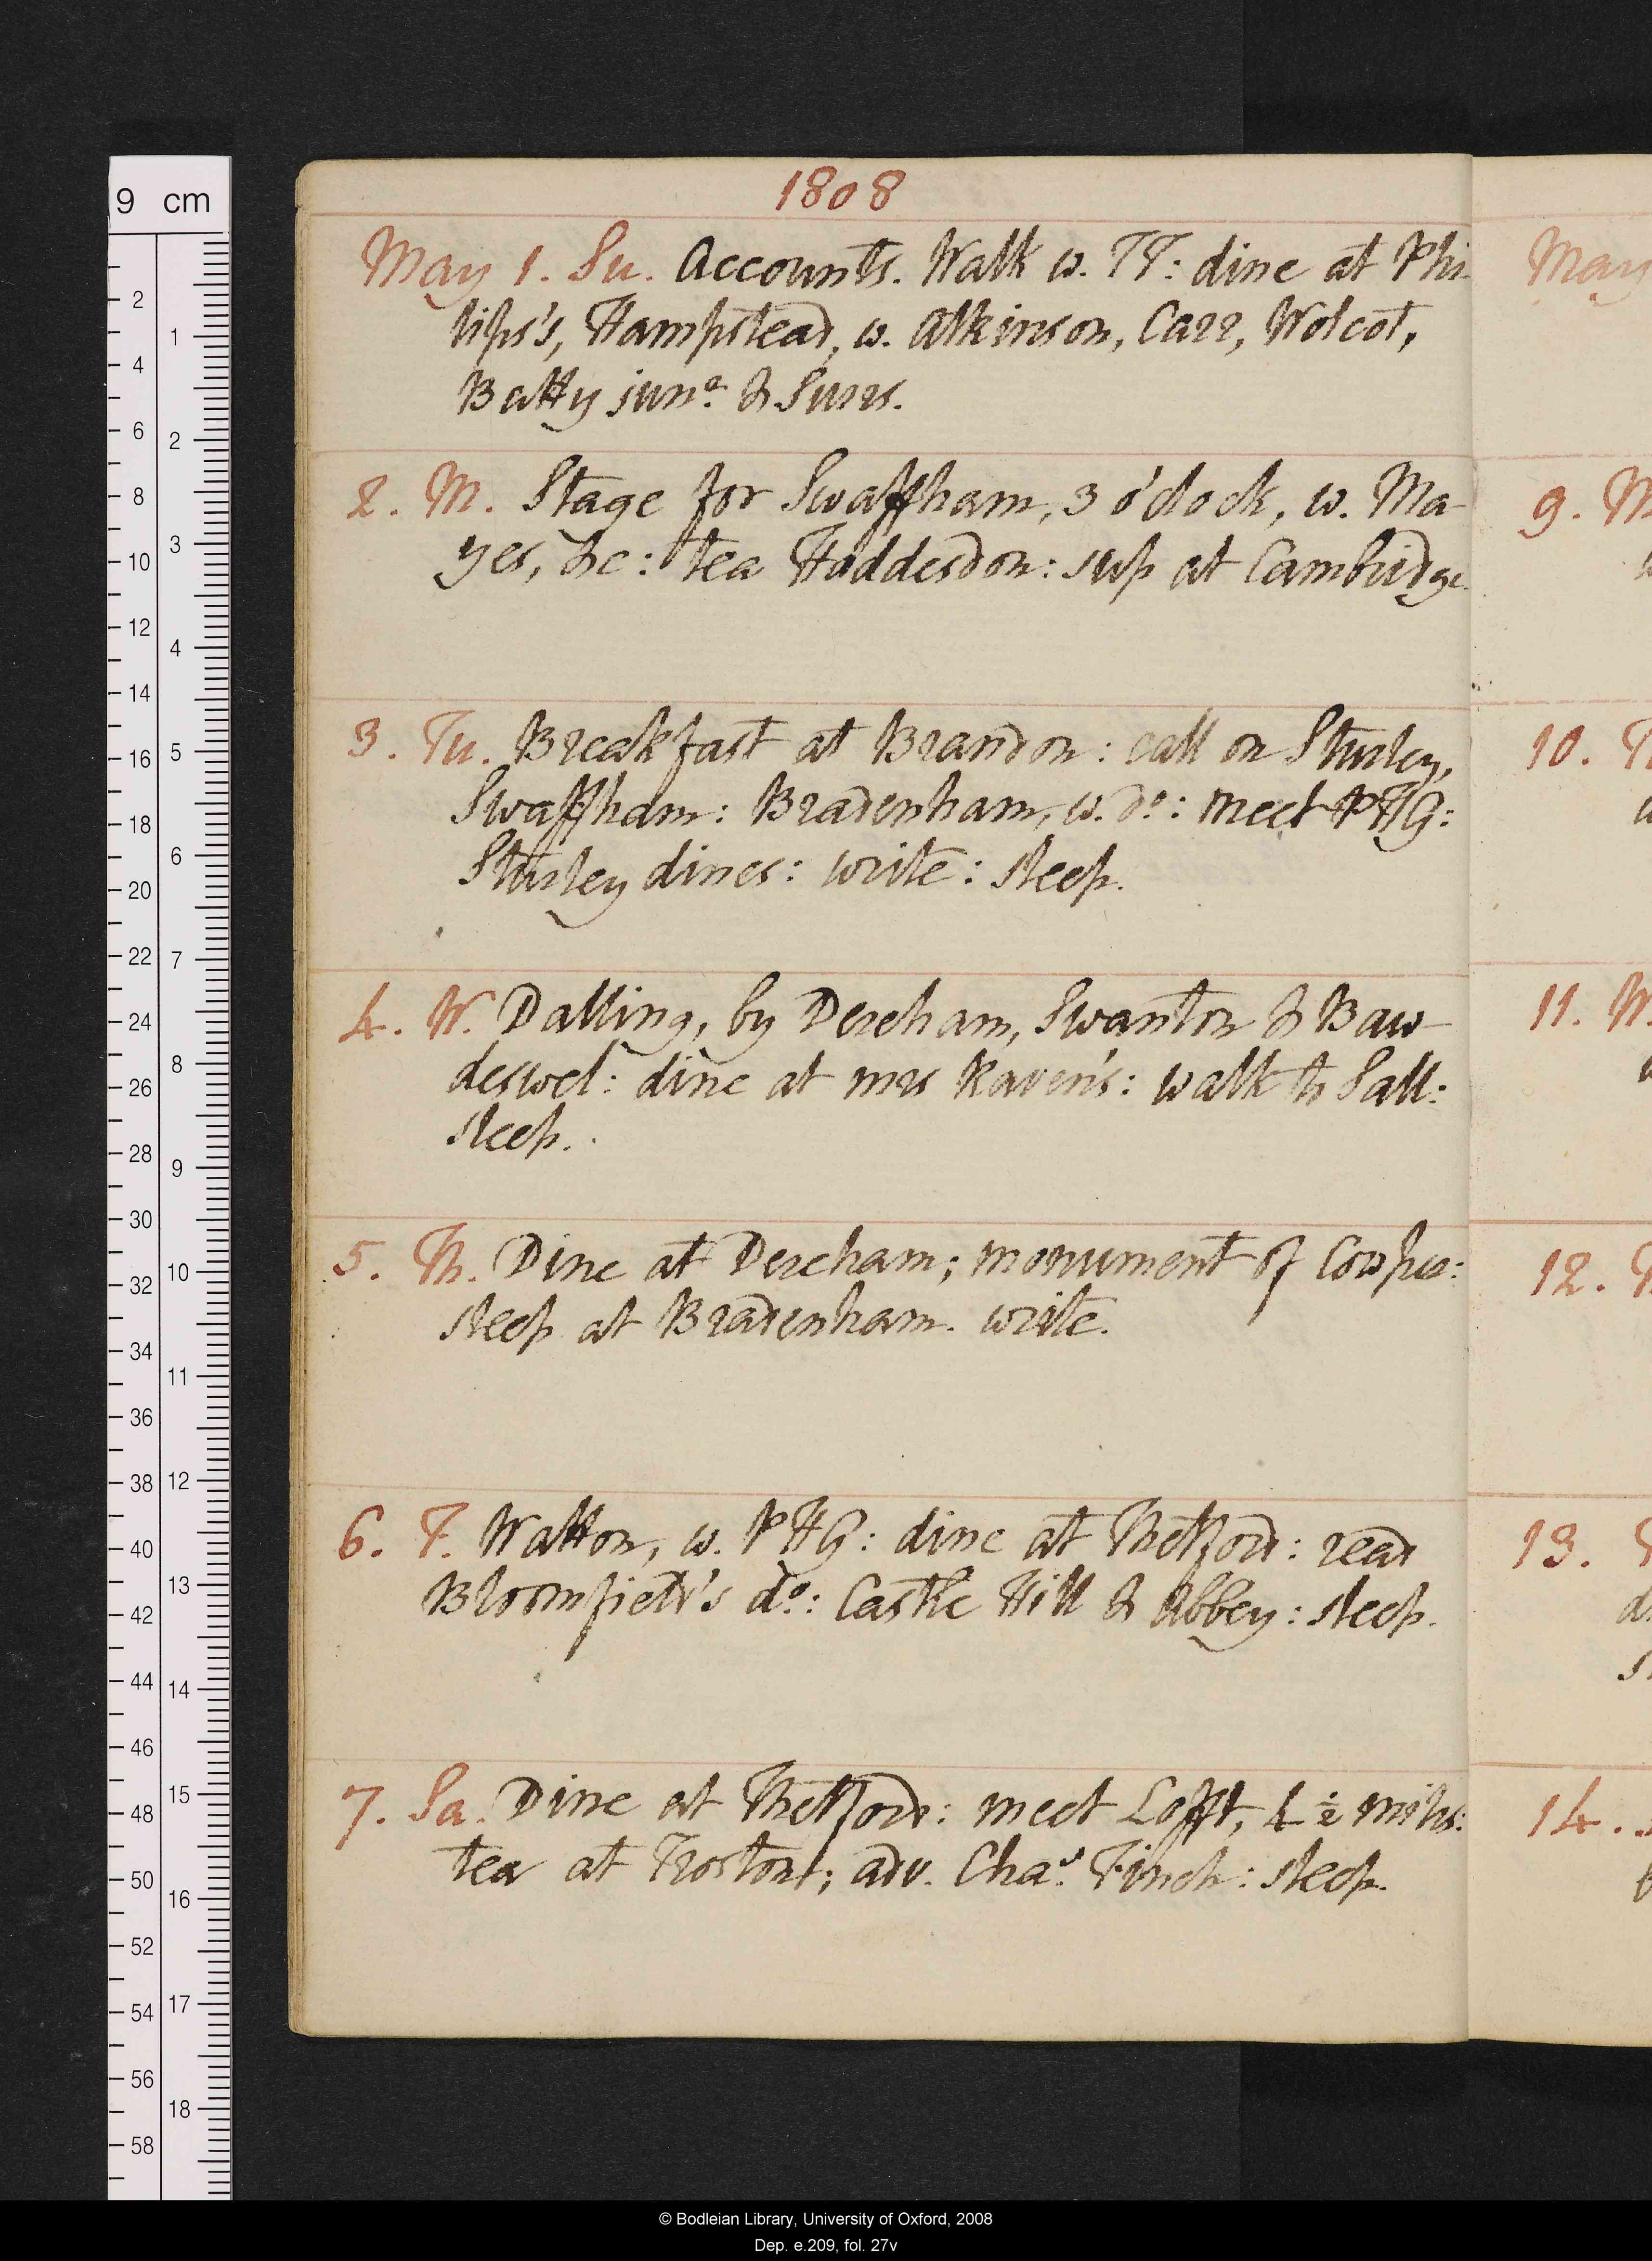 1808
May 1. Su. Accounts. Walk w. TT: dine at Phi-
lips's, Hampstead, w. Atkinson, Carr, Wolcot,
Batty junr. & Surrs.
2. M. Stage for Swaffham, 3 o'clock, w. Ma-
yes, &c: tea Hoddesdon: sup at Cambridge.
3. Tu. Breakfast at Brandon: call on Sturley,
Swaffham: Bradenham, w. do: meet PHG:
Sturley dines: write: sleep.
4. W. Dalling, by Dereham, Swanton & Baw-
deswel: dine at mrs Raven's: walk to Sall:
sleep.
5. Th. Dine at Dereham; monument of Cowper:
sleep at Bradenham. write.
6. F. Watton, w. PHG: dine at Thetford: read
Bloomfield's do: Castle Hill & Abbey: sleep.
7. Sa. Dine at Thetford: meet Lofft, 4 1/2 miles:
tea at Troston; adv. Chas. Finch: sleep.
May
9. M
10. T
11. W
12. T
13.
14.
9 cm
2
4
6
8
10
12
14
16
18
20
22
24
26
28
30
32
34
36
38
40
42
44
46
48
50
52
54
56
58
1
2
3
4
5
6
7
8
9
10
11
12
13
14
15
16
17
18
© Bodleian Library, University of Oxford, 2008
Dep. e.209, fol. 27v